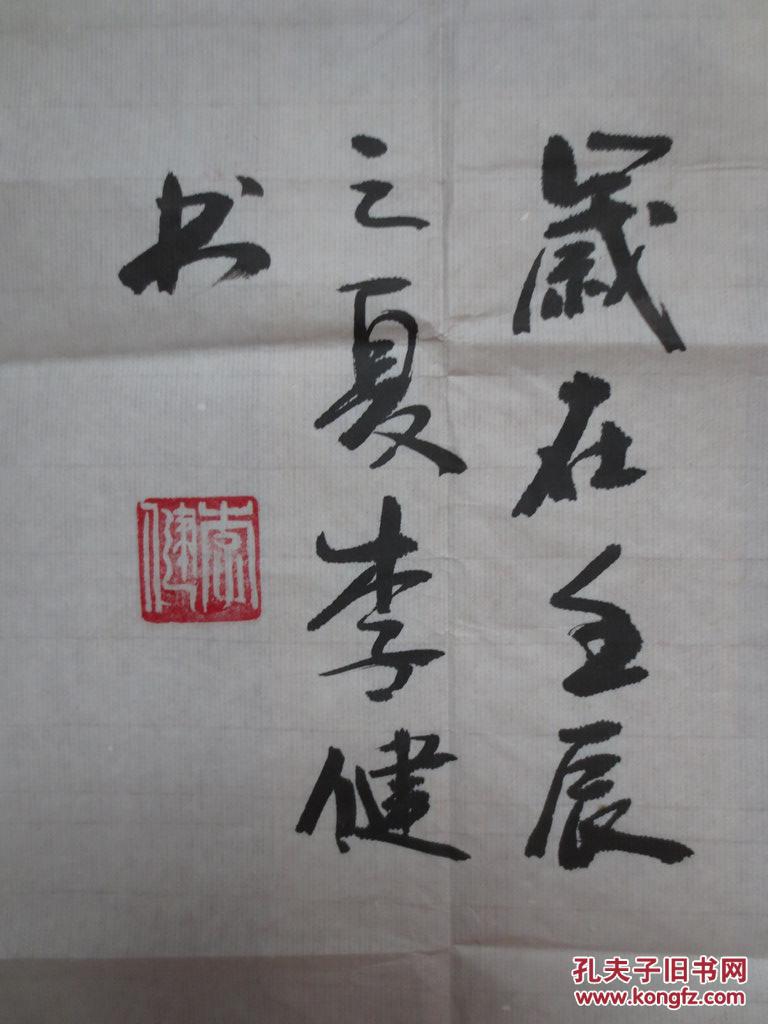 歲在壬辰
之夏李健
书
李健
孔夫子旧书网
www.kongfz.com